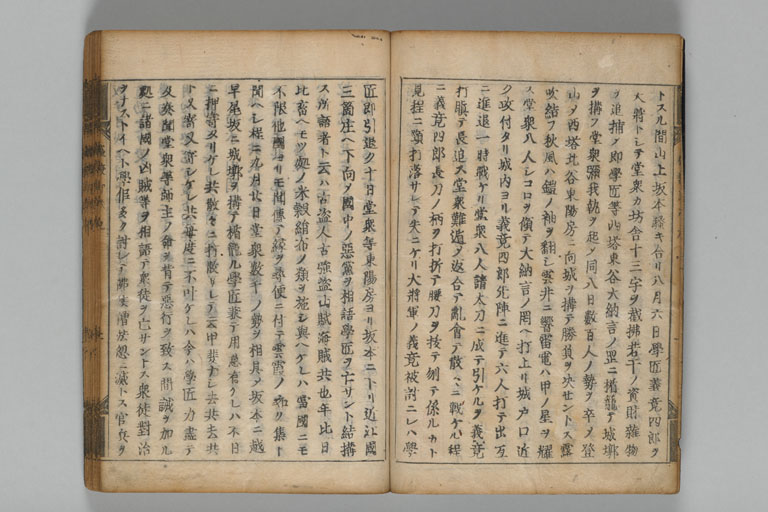 トスル間山上坂本騒キ合リ八月六日學匠義竟四郎ヲ
大將トシテ堂衆カ坊舎十三宇ヲ截拂若干ノ資財雜物
ヲ追捕ク即學匠等西塔東谷大納言ノ罡ニ楯籠テ城墎
ヲ搆フ堂衆 我執ヲ起ノ同八日數百人ノ勢ヲ卒ノ登
山ノ西塔北谷東陽房ニ向城ヲ搆テ勝負ヲ决セントス露
吹結フ秋風ハ鎧ノ袖ヲ翻シ雲井ニ響雷電ハ甲ノ星ヲ耀
ス堂衆八人シコロヲ傾テ大納言ノ罡ヘ打上リ城戸口近
ク攻付タリ城内ヨリ義竟四郎先陣ニ進テ六人打テ出互
ニ進退一時戰ケリ堂衆八人諸太刀ニ成テ引ケルヲ義竟
打瓶テ長追ス堂衆難遁ヲ返合テ亂會テ散〻ニ戰ケル程
ニ義竟四郎長刀ノ柄ヲ打折テ腰刀ヲ拔テ刎テ係ルカト
見程ニ頸打落サレテ失ニケリ大將軍ノ義竟被討ニシハ學
匠即引退ク十日堂衆等東陽房ヨリ坂本ニ下リ近江國
三箇庄ヘ下向ヲ國中ノ惡黨ヲ相語學匠ヲ亡サント結搆
ス所語者ト云ハ古盗人古強盗山賊海賊共也年比日
比畜ヘモツ処ノ米穀絹布ノ類ヲ施シ與ヘケレハ當國ニモ
不限他國ヨリモ聞傳テ縁ヲ尋便ニ付テ雲霞ノ如ク集ト
聞ヘシ程ニ九月廿日堂衆數千ノ勢ヲ相具ヲ坂本ニ越
早尾坂ニ城墎ヲ搆テ楯籠ル學匠 テ用意者ケレハ不日
ニ押寄タリケレ共散々ニ打散サレテ云甲斐ナシ去共去共
ト又寄又寄シケレ共毎度ニ不叶ケレハ今ハ學匠力盡テ
及奏聞堂衆學師主ノ命ヲ背テ惡行ヲ致ス間誡ヲ加ル
処ニ諸國ノ凶賊等ヲ相語テ衆徒ヲ亡サントス衆徒對治
ヲナストイヘト學 多ク討レテ佛法 忽ニ滅トス官兵ヲ